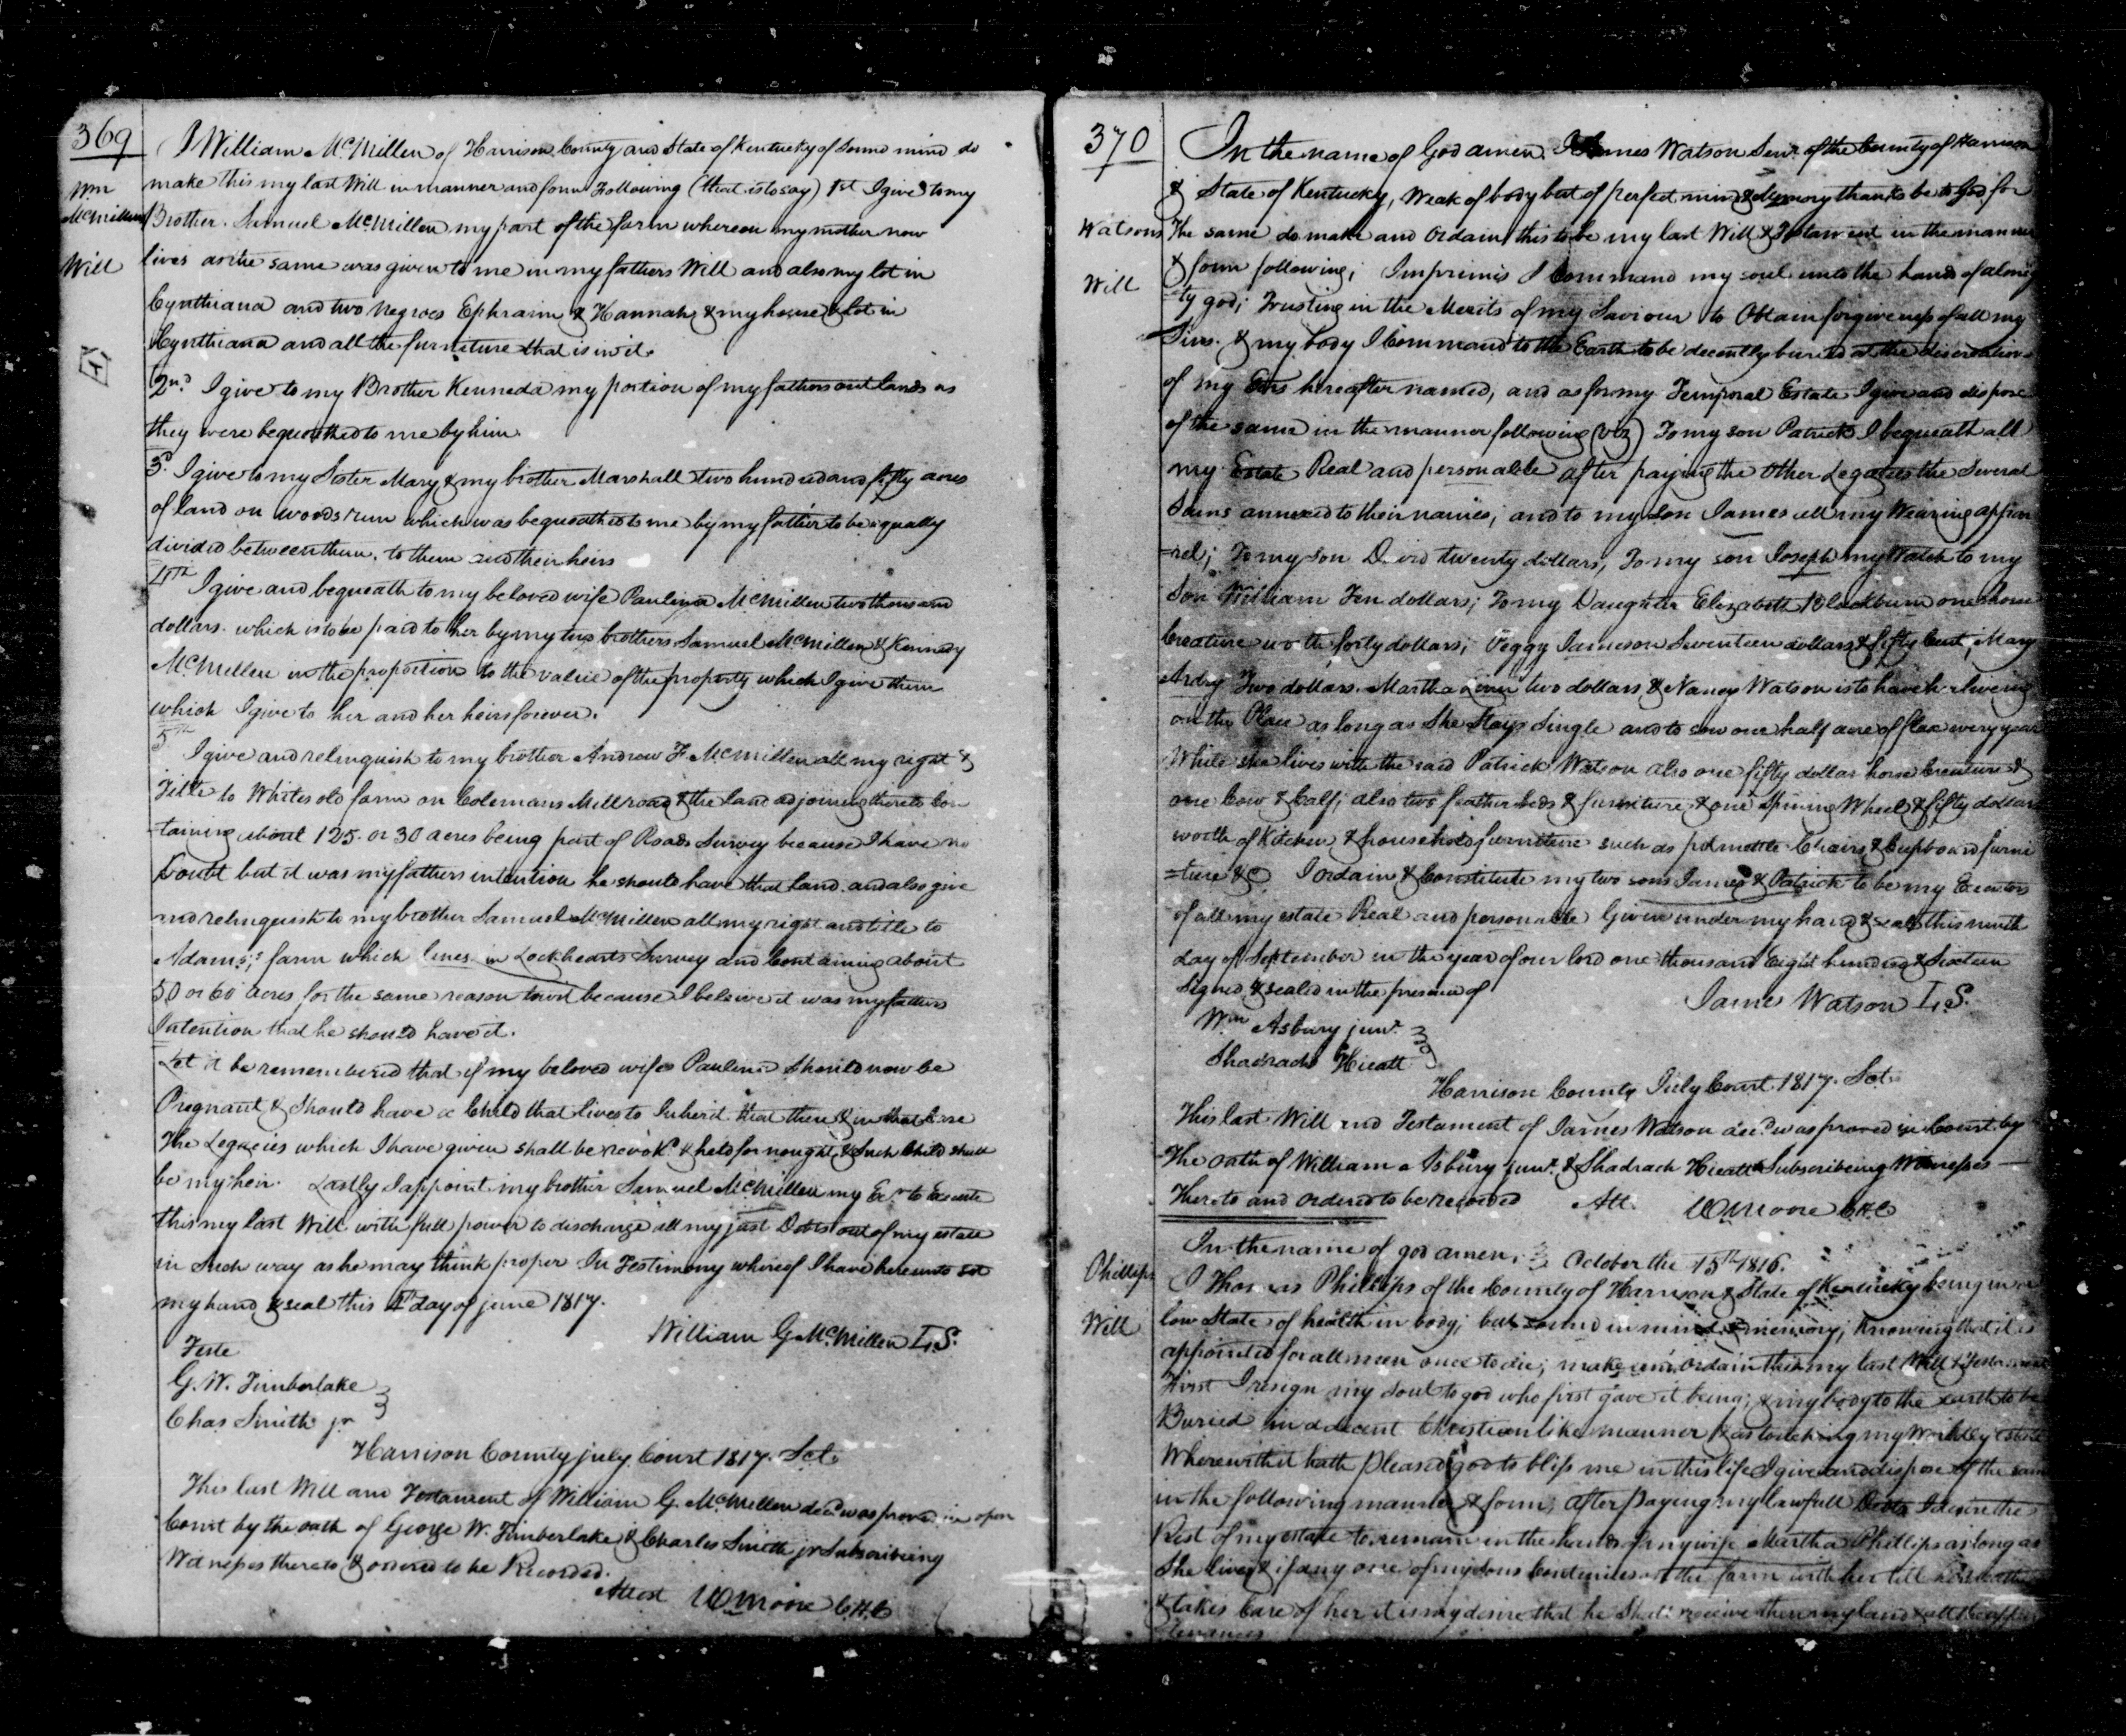 369
Wm
McMillen
Will
I William McMillen of Harrison County and State of Kentucky of Sound mind do
make this my last Will in manner and form Following (that is to say) 1st I give to my
Brother Samuel McMillen my part of the farm whereon my mother now
lives as the same was given to me in my fathers Will and also my lot in
Cynthiana and two negroes Ephraim & Hannah & my house & lot in
Cynthiana and all the furneture that is in it.
2nd I give to my Brother Kenneda my portion of my fathers out lands as
they were bequeathed to me by him.
3d I give to my Sister Mary & my brother Marshall two hundred and fifty acres
of land on woods run which was bequeathed to me by my father to be equally
divided between them. to them and their heirs
4th I give and bequeath to my beloved wife Paulina McMillen two thousand
dollars. which is to be paid to her by my two brothers Samuel McMillen & Kennedy
McMillen in the proportion to the value of the property which I give them
which I give to her and her heirs forever.
5th I give and relinquish to my brother Andrew F McMillen all my right &
Title to Whites old farm on Colemans Mill road & the land adjoining thereto Con
=taining about 125. or 30 acres being part of Roads Survey because I have no
Doubt but it was my fathers intention he should have that land. and also give
and relinquish to my brother Samuel McMillen all my right and title to
Adams's farm which lines in Lockhearts Survey and Containing about
50 or 60 acres for the same reason towit because I beleive it was my fathers
Intention that he should have it.
Let it be remembered that if my beloved wife Paulina Should now be
Pregnant & Should have a Child that lives to Inherit that then & in that Case
The Legacies which I have given shall be revokd & held for nought & Such Child shall
be my heir. Lastly I appoint my brother Samuel McMillen my Exr to Execute
this my last Will with full power to discharge all my just Debts out of my estate
in Such way as he may think proper In Testimony whereof I have hereunto set
my hand & seal this 4th day of june 1817.
William G McMillen L.S.
Teste
G. W. Timberlake
Chas Smith jr
Harrison County july Court 1817. Sct.
This last Will and Testament of William G. McMillen decd was proved in open
Court by the oath of George W. Timberlake & Charles Smith jr Subscribeing
Witnesses thereto & ordered to be Recorded.
Attest W Moore CHC
370
Watsons
Will
In the name of God amen. I James Watson Senr. of the County of Harrison
& State of Kentucky, Weak of body but of perfect mind & Memory thanks be to God for
The same do make and Ordain this to be my last Will & Testament in the manner
& form following; Imprimis I Command my soul unto the hands of almig
=ty god; Trusting in the Merits of my Saviour to Obtain forgiveness of all my
Sins. & my body I Command to the Earth to be decently buried at the discreation
of my Exrs hereafter named, and as for my Temporal Estate I give and dispose
of the same in the manner following (viz) To my son Patrick I bequeath all
my Estate Real and personable after paying the Other Legatees the Several
Sums annexed to their names; and to my Son James all my Wearing appar
=rel; To my son David twenty dollars, To my son Joseph my Watch to my
Son William Ten dollars; To my Daughter Elizabeth Blackburn one horse
Creature worth forty dollars; Peggy Jameson Seventeen dollars & fifty Cent; Mary
Ardry Two dollars. Martha two dollars & Nancy Watson is to have her liveing
on the Place as long as She Stays Single and to sow one half acre of flax every year
While she lives with the said Patrick Watson also one fifty dollar horse Creature &
one Cow & Calf; also two feather beds & furniture & one Spining Wheel & fifty dollars
worth of Kitchen & household furniture such as pot mettle Chairs & Cupboard furni
=ture &C I ordain & Constitute my two sons James & Patrick to be my Executors
of all my estate Real and personable Given under my hand & seal this ninth
day of September in the year of our lord one thousand Eight hundred & Sixteen
Signed & sealed in the presence of
James Watson L.S.
Wm Asbury junr.
Shadrach Hieatt
Harrison County July Court 1817. Sct.
This last Will and Testament of James Watson decd was proved in Court by
The oath of William Asbury junr. & Shadrach Hieatt Subscribeing Witnesses
Thereto and ordered to be recorded Att. W Moore CHC
Phillips
Will
In the name of god amen; October the 15th 1816.
I Thomas Phillips of the County of Harrison & State of Kentucky being in a
low State of health in body; but sound in mind & memory; Knowing that it is
appointed for all men once to die; make and ordain this my last Will & Testament
First I resign my soul to god who first gave it being; & my body to the earth to be
Buried in a decent Christian like manner & as touching my Worldly estate
Wherewith it hath pleased god to bless me in this life I give and dispose of the same
in the following manner & form; After Paying my lawfull Debts I desire the
Rest of my estate to remain in the hands of my wife Martha Phillips as long as
She lives & if any one of my sons Continues on the farm with her till
& takes Care of her it is my desire that he Shall receive then my land & all the appur
tenances